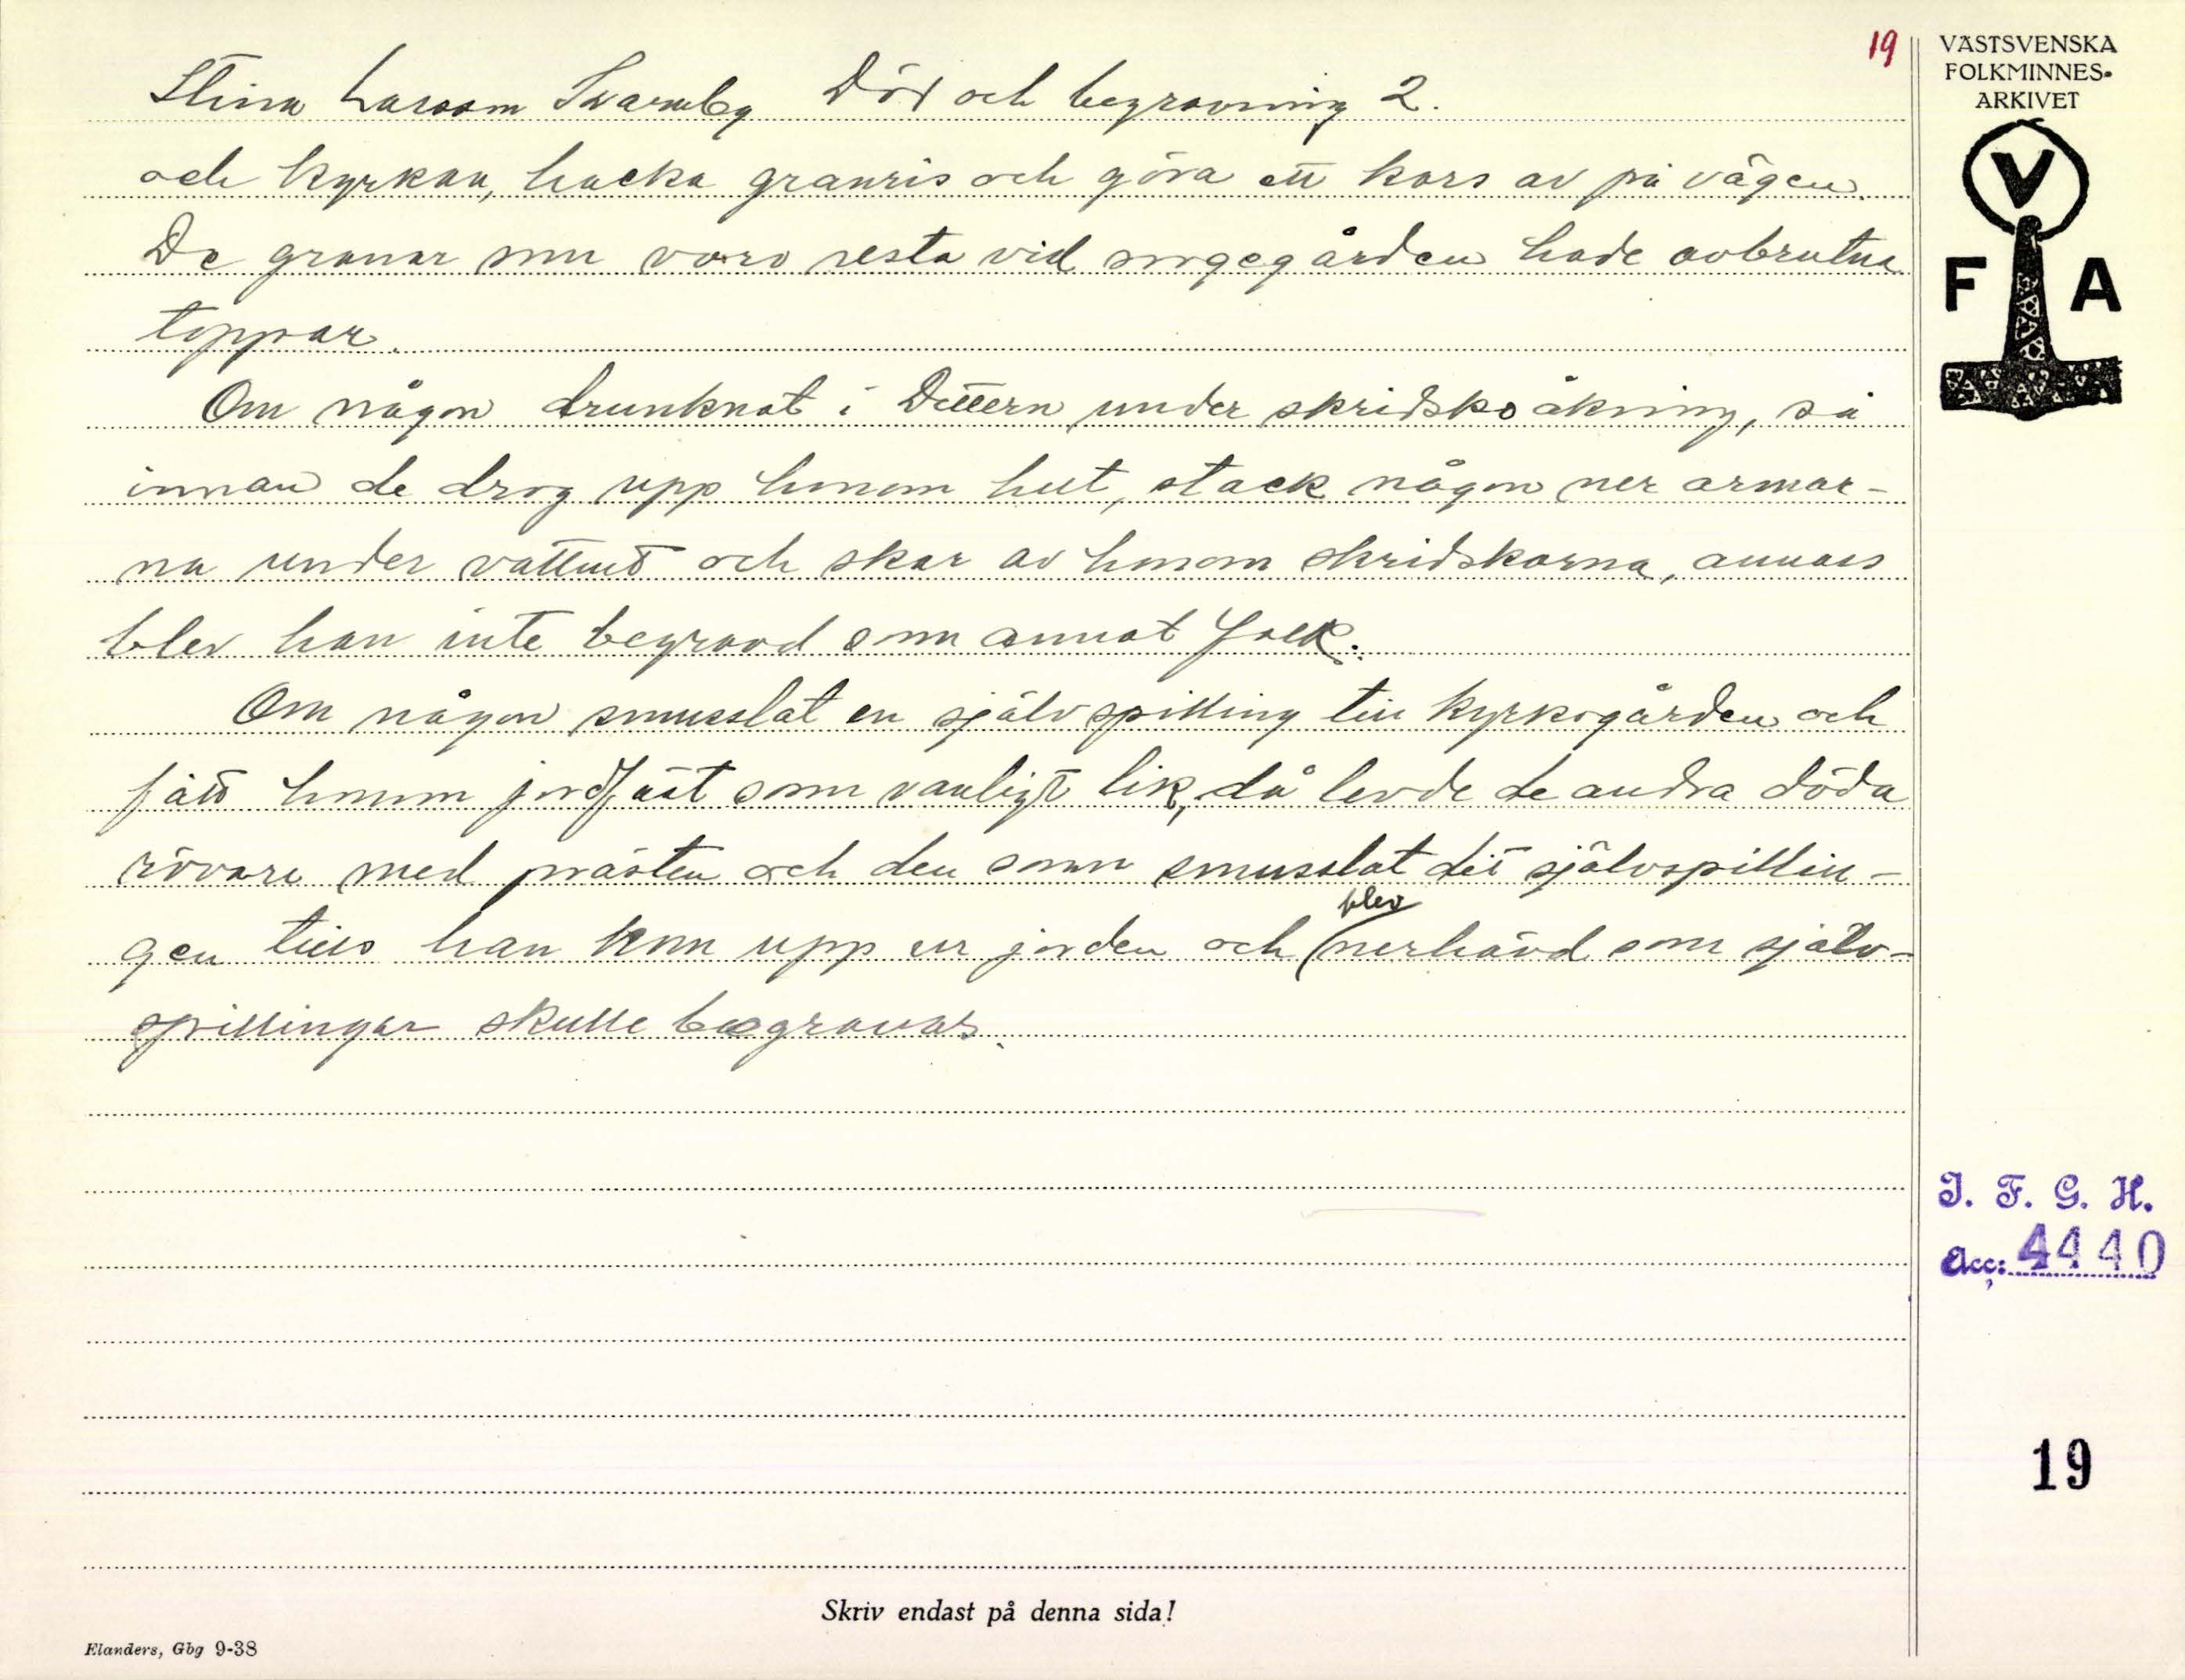 19
VÄSTSVENSKA
FOLKMINNES-
ARKIVET
V
F A
Stina Larsson Tvaraby Död och begravning 2.
och kyrkan, hacka granris och göra ett kors av på vägen.
De granar som voro resta vid sorgegården hade avbrutna
toppar.
Om någon drunknat i Dettern under skridskoåkning, så
innan de drog upp honom helt, stack någon ner armar-
na under vattnet och skar av honom skridskorna, annars
blev han inte begravd som annat folk.
Om någon smusslat en självspilling till kyrkogården och
fått honom jordfäst som vanligt lik, då levde de andra döda
rövare med prästen och den som smusslat dit självspillin-
gen tills han kom upp ur jorden och blev nerhävd som själv-
spillingar skulle begravas.
I. F. G. H.
Acc: 4440
19
Skriv endast på denna sida!
Elanders, Gbg 9-38